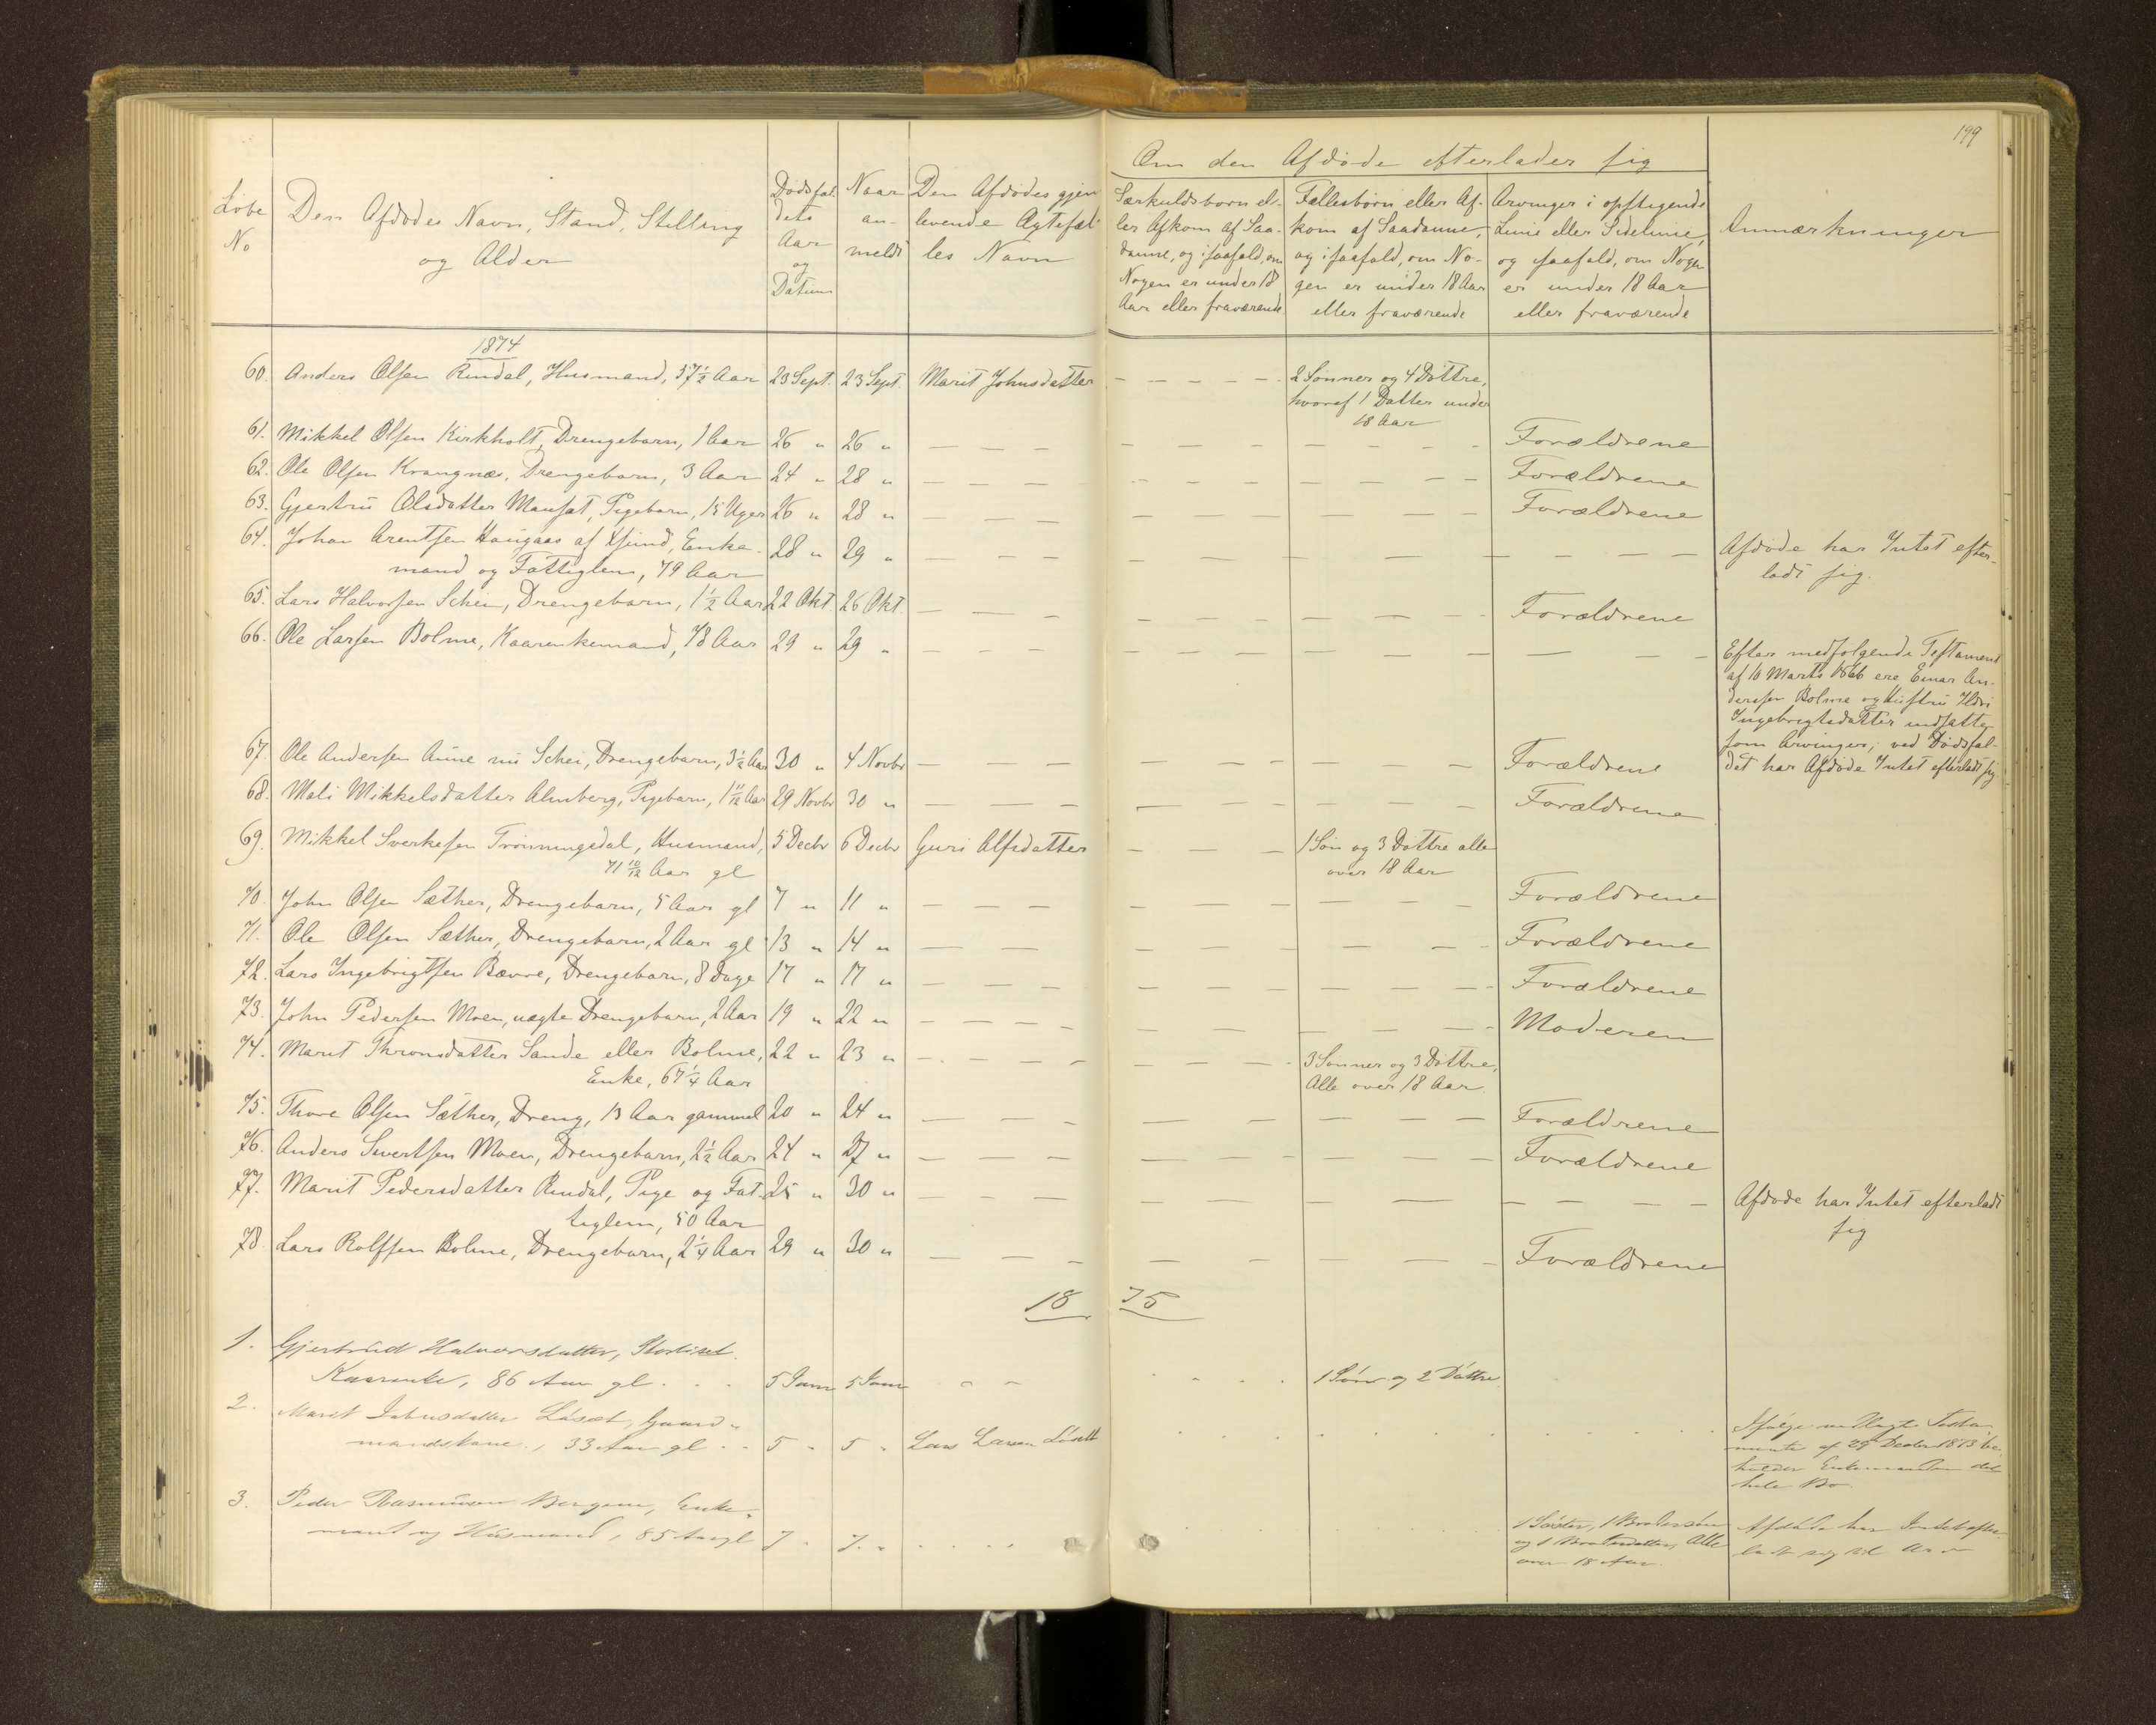 199
Om den Afdøde efterlader sig
Løbe No
Den Afdødes Navn, Stand, Stilling
og Alder
Dødsfal-
dets
Aar
og
Datum
Naar
an-
meldt
Den Afdødes gjen
levende Ægtefæl
les Navn
Særkuldsbørn el-
ler Afkom af Saa-
danne, og isaafald, om
Nogen er under 18
Aar eller fraværende
Fællesbørn eller Af-
kom af Saadanne,
og isaafald, om No-
gen er under 18 Aar
eller fraværende
Arvinger i opstigende
Linie eller Sidelinie,
og isaafald, om Nogen
er under 18 Aar
eller fraværende
Anmærkninger
1874
60. Anders Olsen Rindal, Husmand, 57 1/2 Aar 23 Sept. 23 Sept. Marit Johnsdatter - - - - - 2 Sønner og 4 Døttre,
hvoraf 1 Datter under
18 Aar
61. Mikkel Olsen Kirkholt, Drengebarn, 1 Aar 26 " 26 " Forældrene
62. Ole Olsen Krangnæs, Drengebarn, 3 Aar 24 " 28 " Forældrene
63. Gjertru Olsdatter Mausæt, Pigebarn, 15 Uger 26 " 28 " Forældrene
64. Johan Arentsen Haugaas af Enke- 28 " 29 " Afdøde har Intet efter-
mand og Fattiglem, 79 Aar ladt sig.
65. Lars Halvorsen Schei, Drengebarn, 1 1/2 Aar 22 Okt. 26 Okt. Forældrene
66. Ole Larsen Bolme, Kaarenkemand, 78 Aar 29 " 29 " Efter medfølgende Testament
af 10 Marts 1866 ere Einar An-
dersen Bolme og Hustru Ildri
Ingebrigtsdatter indsatte
som Arvinger; ved Dødsfal-
det har Afdøde Intet efterladt sig
67. Ole Andersen Aune nu Schei, Drengebarn, 3 1/2 Aar 30 " 4 Novbr Forældrene
68. Mali Mikkelsdatter Almberg, Pigebarn, 1 11/12 Aar 29 Novbr 30 " Forældrene
69. Mikkel Sverkesen Trønningsdal, Husmand, 5 Decbr 6 Decbr Guri Alfsdatter 1 Søn og 3 Døttre alle
71 10/12 Aar gl over 18 Aar
70. John Olsen Sæther, Drengebarn, 5 Aar gl 7 " 11 " Forældrene
71. Ole Olsen Sæther, Drengebarn, 2 Aar gl 13 " 14 " Forældrene
72. Lars Ingebrigtsen Bævre, Drengebarn, 8 Dage 17 " 17 " Forældrene
73. John Pedersen Moen, uægte Drengebarn, 2 Aar 19 " 22 " Moderen
74. Marit Thronsdatter Sande eller Bolme, 22 " 23 " 3 Sønner og 3 Døttre,
Enke, 67 1/4 Aar Alle over 18 Aar.
75. Thore Olsen Sæther, Dreng, 13 Aar gammel 20 " 24 " Forældrene
76. Anders Sivertsen Moen, Drengebarn, 2 1/2 Aar 24 " 27 " Forældrene
77. Marit Pedersdatter Rindal, Pige og Fat- 25 " 30 " Afdøde har Intet efterladt
tiglem, 50 Aar sig
78. Lars Rolfsen Bolme, Drengebarn, 2 1/4 Aar 29 " 30 " Forældrene
18 75
1. Gjertrud Halvorsdatter,
Kaarenke, 86 Aar gl. 5 Janr 5 Janr 1 Søn og 2 Døttre.
2. Marit Johnsdatter Løset, Gaard-
mandskone, 33 Aar gl. 5 " 5 " Lars Larsen Løsett Ifølge vedlagte Testa-
mente af 29 Decbr 1873 be-
holder Enkemanden det
hele Bo.
3. Peder Rasmussen Enke-
mand og Husmand, 85 Aar gl 7 " 7 " 1 Søster, 1 Brodersøn
og 1 Broderdatter, Alle
over 18 Aar.
Afdøde har Intet efter-
ladt sig til Arv